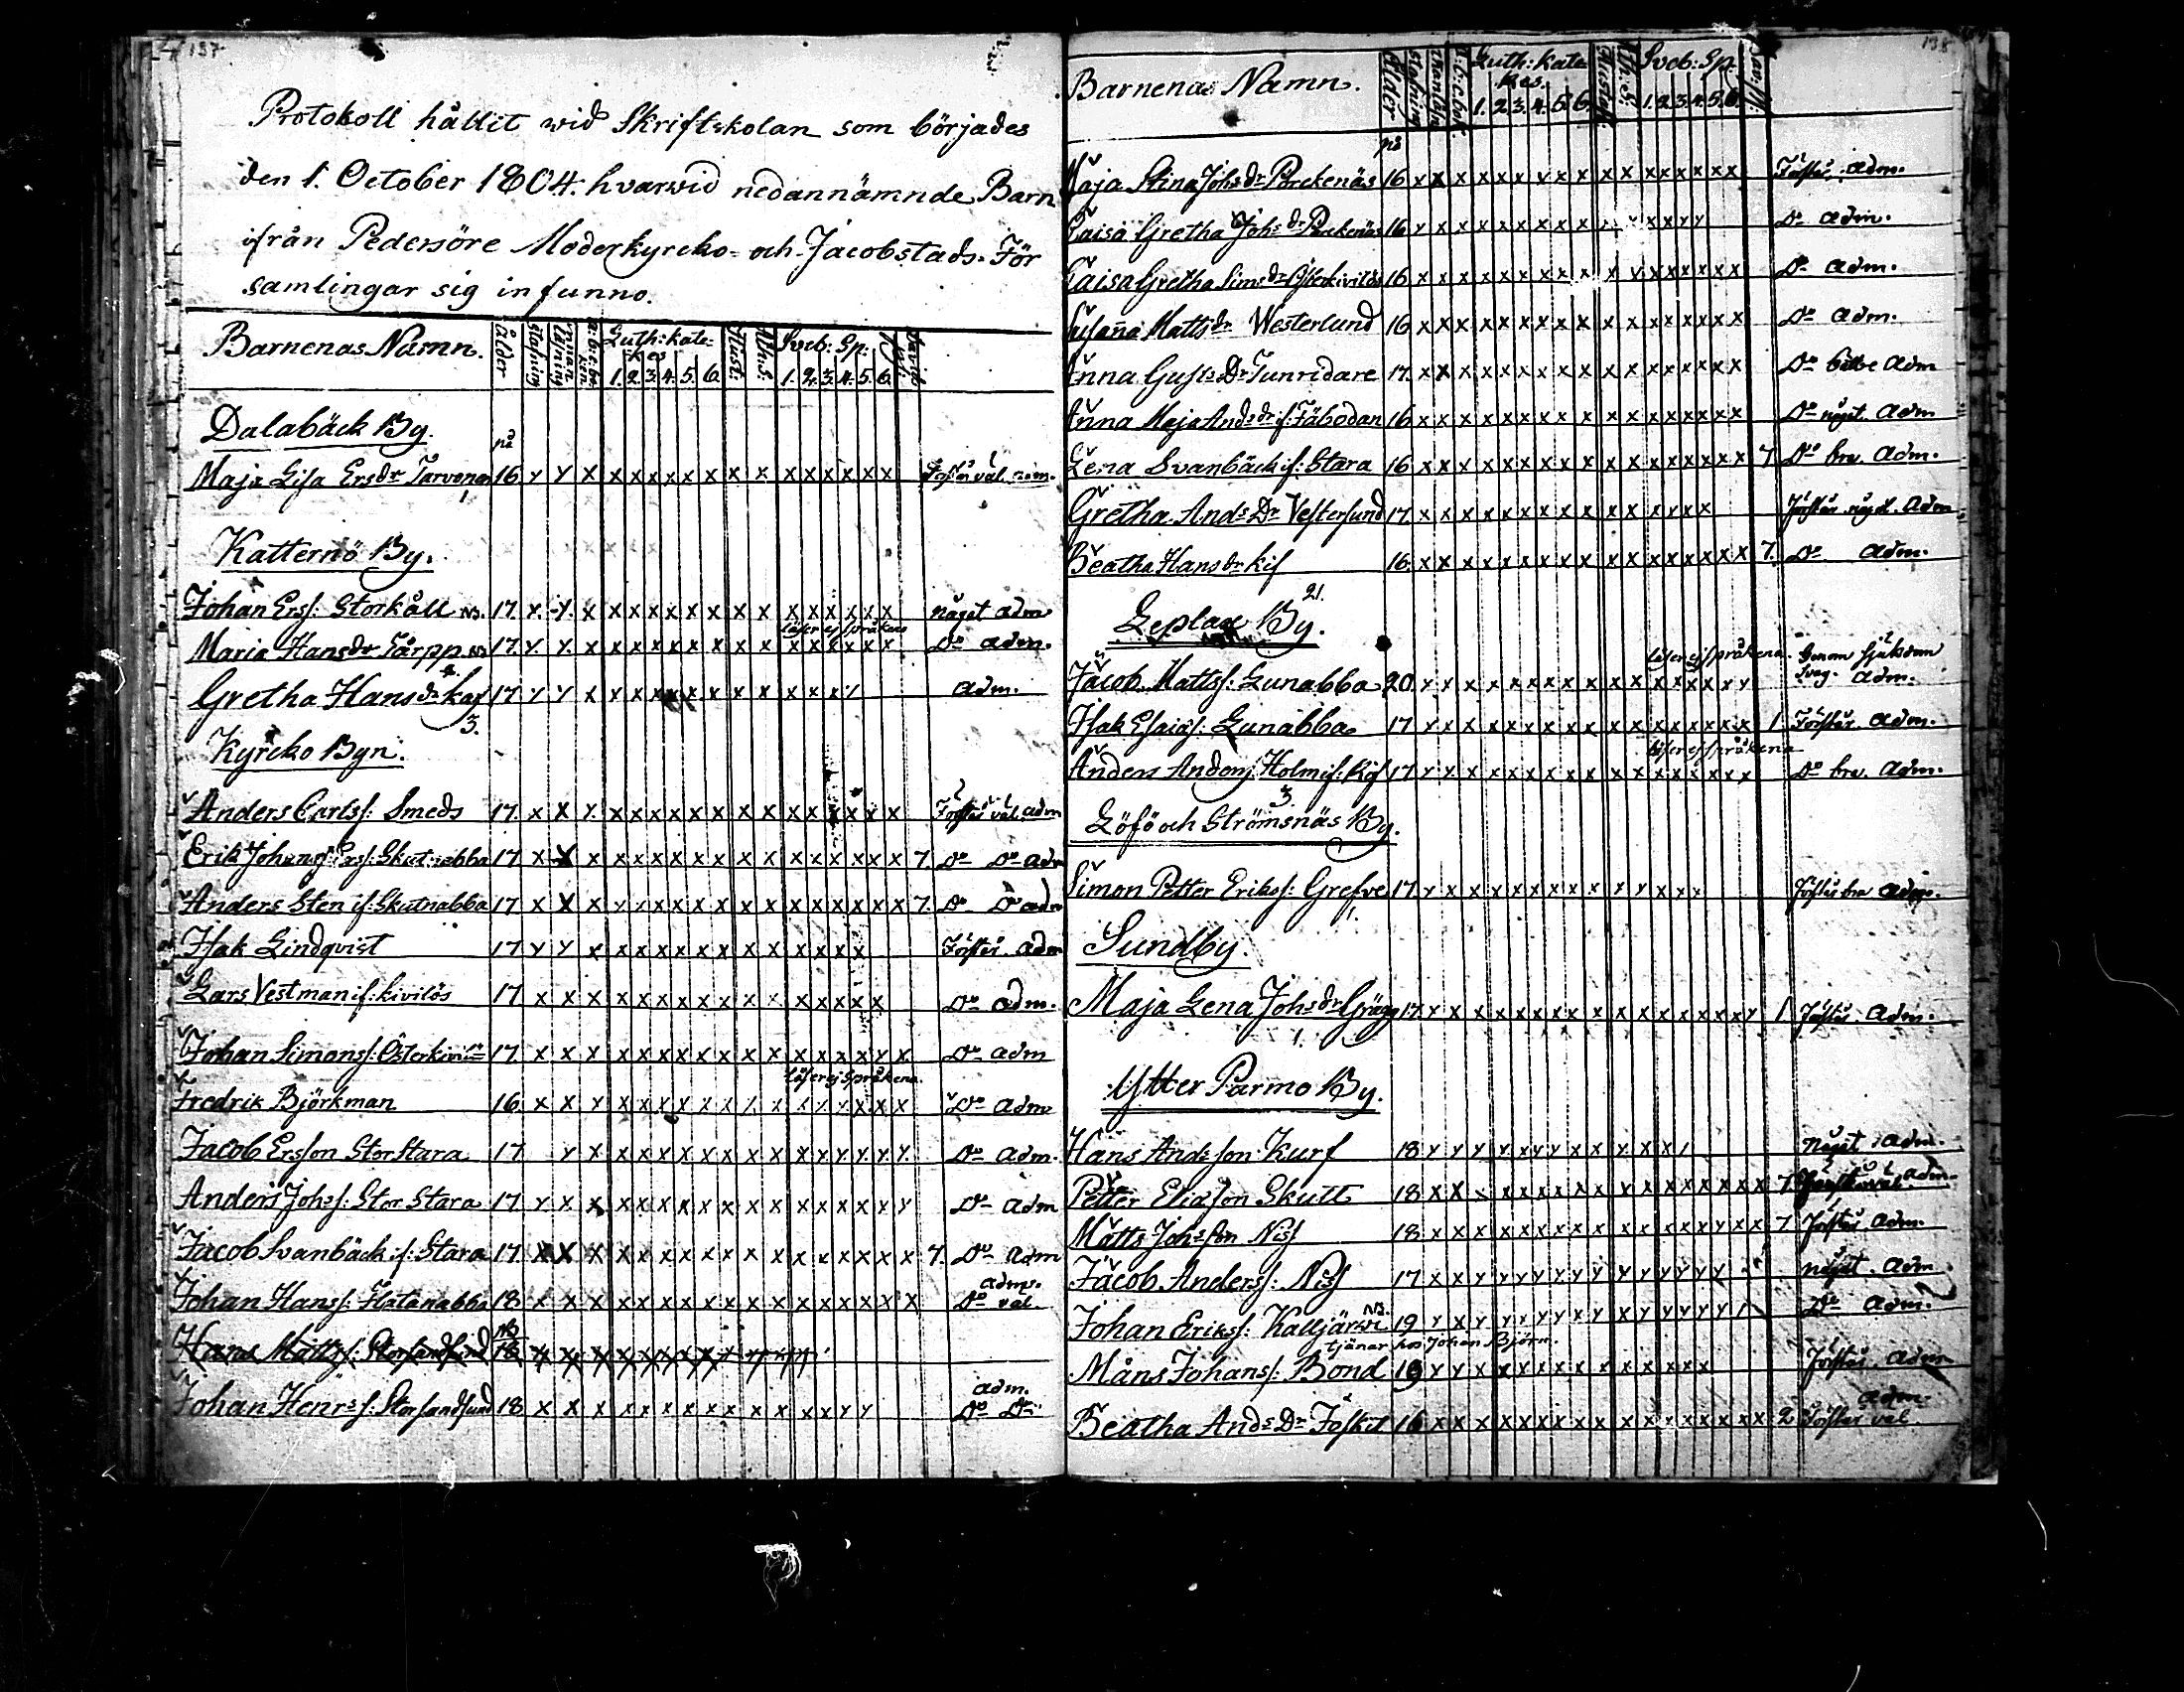 137
Protokoll hållit wid Skriftskolan som börjades
den 1. October 1804. hvarwid nedannämnde Barn
ifrån Pedersöre Moderkyrcko- och Jacobstads För
samlingar sig infunno.
Barnenas Namn. Ålder Stafning Luth: kate= kes Sveb: Sp:
1. 2. 3. 4. 5. 6. 1. 2. 3. 4. 5. 6.
Dalabäck By.
på
Maja Lisa Ersdr Tarvonen 16 x x x x x x x x x x x x x x x x x
1
Katternö By.
Johan Erss: Storkåll NB. 17. x x x x x x x x x x x x x x x x x något adm
läser ej språken
Maria Hansdr Färpp NB 17. x x x x x x x x x x x x x x x x x Do adm.
Gretha Hansdr kaj 17 x x x x x x x x x x x x x x x adm.
3.
Kyrcko Byn.
Anders Carlss: Smeds 17. x x x x x x x x x x x x x x x x x Förstår väl adm
Erik Johans: Skutnabba 17 x x x x x x x x x x x x x x x x x 7 Do Do adm
Anders Sten if: Skutnabba 17 x x x x x x x x x x x x x x x x x 7. Do Do adm
Isak Lindqvist 17 x x x x x x x x x x x x x x x Förstår adm
Lars Vestman if: kivilös 17 x x x x x x x x x x x x x x x x Do adm.
Johan Simonss: Österkivil 17 x x x x x x x x x x x x x x x x x Do adm
läser ej språkena
Fredrik Björkman 16. x x x x x x x x x x x x x x x x x Do adm
Jacob Ersson Storstara 17 x x x x x x x x x x x x x x x x Do adm.
Anders Johss: Stor Stara 17 x x x x x x x x x x x x x x x x x Do adm
Jacob Svanbäck if: Stara 17. x x x x x x x x x x x x x x x x x 7. Do adm
adm.
Johan Hanss: Flatanabba 18 x x x x x x x x x x x x x x x x x Do väl
Hans Matts: Storsandsund 18
adm.
Johan Henrs: Storsandsund 18 x x x x x x x x x x x x x x x x Do Do
138
Barnenas Namn. Ålder Stafning Luth: kate kes. Sveb: Sp:
1. 2. 3. 4. 5. 6. 1. 2. 3. 4. 5. 6.
på
Maja Stina Johs dr Porckenäs 16 x x x x x x x x x x x x x x x x x Förstår adm.
Caisa Gretha Johs dr Porckenäs 16 x x x x x x x x x x x x x x x Do adm.
Caisa Gretha Sims dr Österkivilös 16 x x x x x x x x x x x x x x x x x Do adm.
Susanna Matts dr Westerlund 16 x x x x x x x x x x x x x x x x x Do adm.
Anna Gusts Dr Tunridare 17. x x x x x x x x x x x x x x x x x Do adm
Anna Maja Ands dr if: Fäbodan 16 x x x x x x x x x x x x x x x x x Do något. adm
Lena Svanbäck if: Stara 16 x x x x x x x x x x x x x x x x x 7 Do bra. adm.
Gretha Ands Dr Vestersund 17. x x x x x x x x x x x x x x x Förstår något. adm
Beatha Hans dr kif 16. x x x x x x x x x x x x x x x x x 7. Do adm.
21.
Leplax By.
läser ej språkena. Genom sjukdom
Jacob Mattss: Lunabba 20 x x x x x x x x x x x x x x x x x svag. adm.
Isak Esaiäs: Lunabba 17 x x x x x x x x x x x x x x x x x 1 Förstår adm.
läser ej språkena
Anders Anders: Holm if: Kif 17 x x x x x x x x x x x x x x x x x Do bra. adm.
3
Löfö och Strömsnäs By.
Simon Petter Erikss: Grefve 17. x x x x x x x x x x x x x x x Förstår bra adm.
1.
Sundby.
Maja Lena Johs dr Grägg 17. x x x x x x x x x x x x x x x x x 1 Förstår. adm.
1.
Ytter Purmo By.
Hans Andsson Kurf 18 x x x x x x x x x x x x x x något adm.
Petter Eliasson Skutt 18 x x x x x x x x x x x x x x x x x 7 adm.
Matts Johsson Niss 18 x x x x x x x x x x x x x x x x x 7 Förstår adm.
Jacob Anderss: Niss 17 x x x x x x x x x x x x x x x x något. adm
Johan Erikss: Kalljärwi NB. 19 x x x x x x x x x x x x x x x x Do adm.
tjänar hos Johan Björn.
Måns Johanss: Bond 19 x x x x x x x x x x x x x x x Förstår adm
adm.
Beatha Ands Dr Foskit 16 x x x x x x x x x x x x x x x x x 2 Förstår väl.